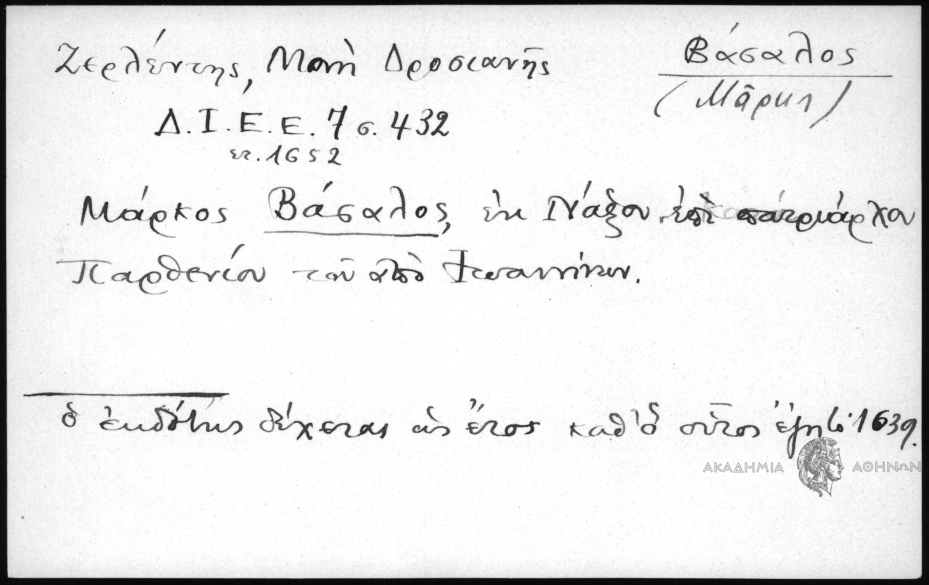 Ζερλέντης, Μονὴ Δροσιανῆς
Βάσαλος
(Μᾶρκος)
Δ.Ι.Ε.Ε. 7 σ. 432
ετ. 1652
Μάρκος Βάσαλος, ἐκ Νάξου ἐπὶ πατριάρχου
Παρθενίου τοῦ ἀπὸ Ἰωαννίνων.
ὁ ἐκδότης δέχεται ὡς ἔτος καθ' ὃ οὗτος ἔζη τὸ 1639.
ΑΚΑΔΗΜΙΑ ΑΘΗΝΩΝ